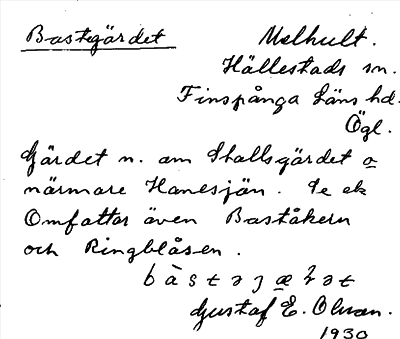 Bastegärdet Melhult.
Hällestads sn.
Finspånga läns hd.
Ögl.
Gärdet n. om Stallsgärdet o
närmare Hanesjön. Se ek
Omfattar även Baståkern
och Ringblåsen.
Gustaf E. Olsson.
1930